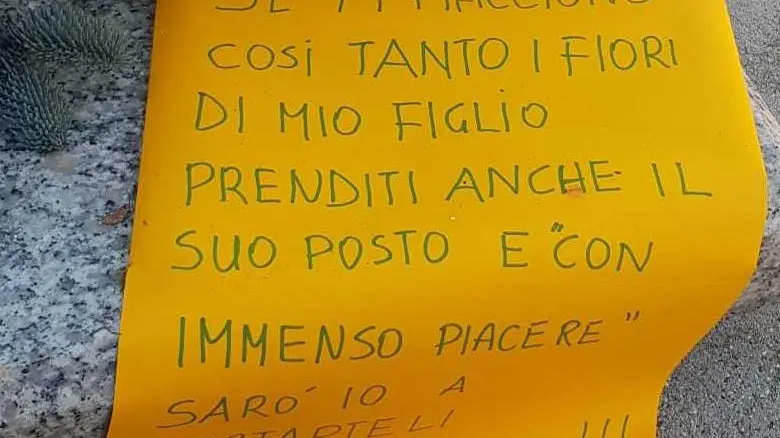 SE TI PIACCIONO
COSì TANTO I FIORI
DI MIO FIGLIO
PRENDITI ANCHE IL
SUO POSTO E "CON
IMMENSO PIACERE"
SARO' IO A
!!!